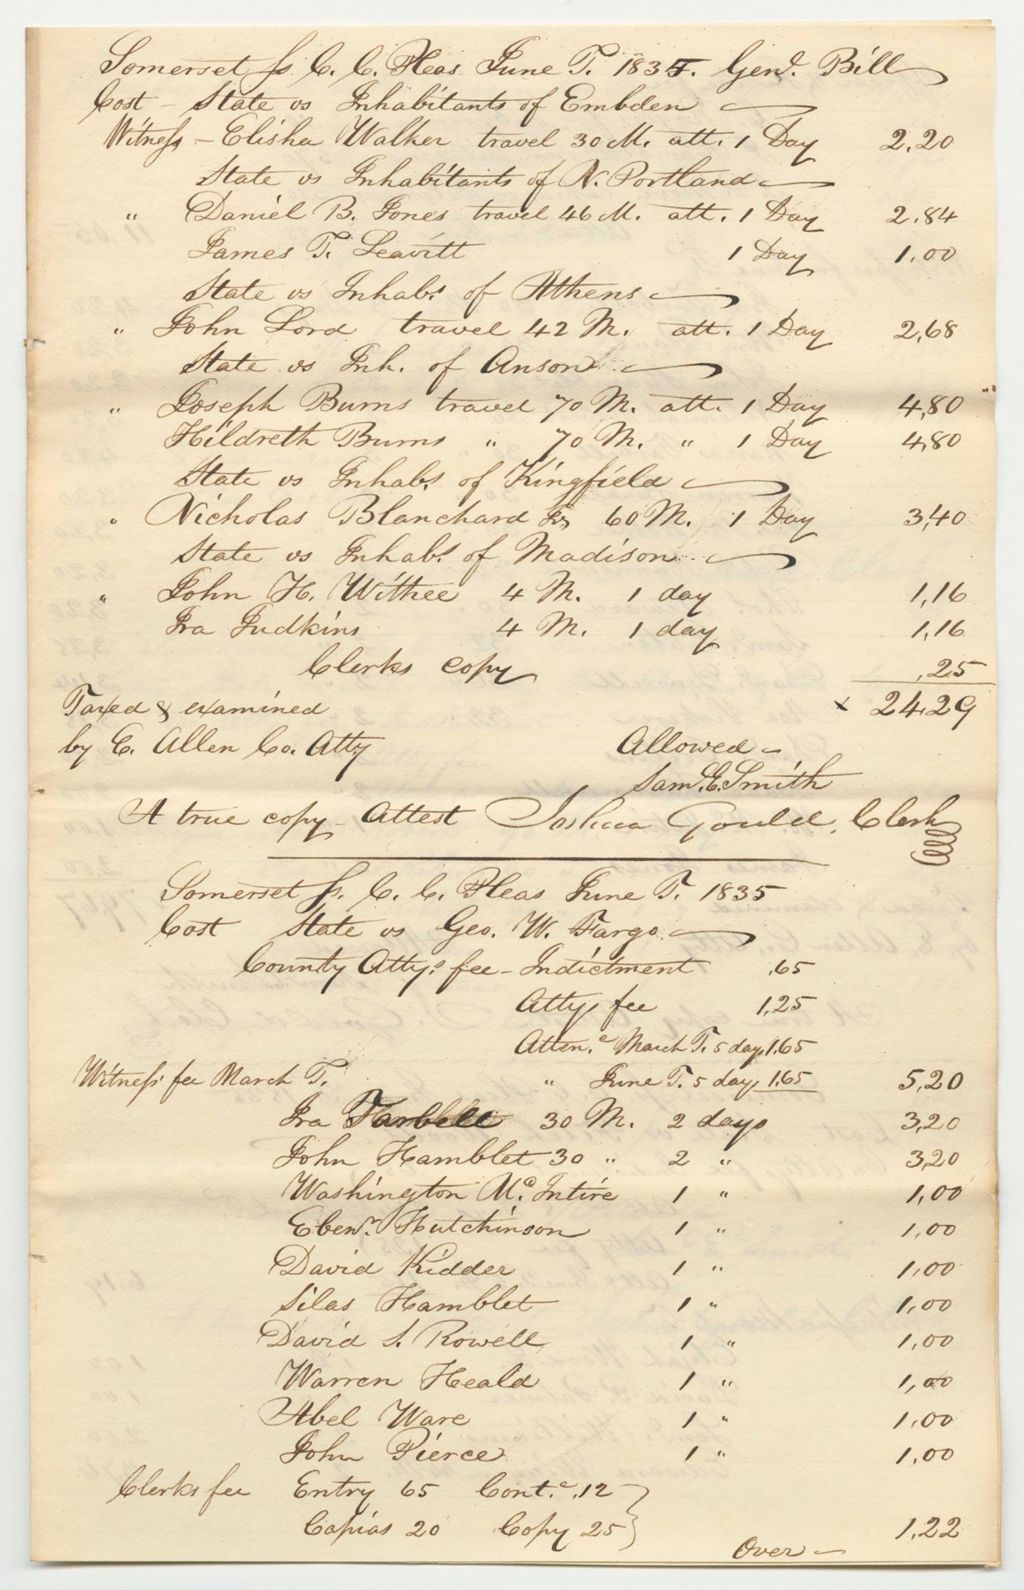 Somerset ss. C. C. Pleas June T. 1835. Genl. Bill
Cost – State vs Inhabitants of Embden
Witness – Elisha Walker travel 30 M. att. 1 Day 2.20
State vs Inhabitants of N. Portland
" Daniel B. Jones travel 46 M. att. 1 Day 2.84
James T. Leavitt 1 Day 1.00
State vs Inhabs. of Athens
" John Lord travel 42 M. att. 1 Day 2,68
State vs Inh. of Anson
" Joseph Burns travel 70 M. att. 1 Day 4,80
Hildreth Burns " 70 M. " 1 Day 4,80
State vs Inhabs. of Kingfield
" Nicholas Blanchard Jr 60 M. 1 Day 3,40
State vs Inhabs. of Madison
" John H. Withee 4 M. 1 day 1,16
Ira Judkins 4 M. 1 day 1,16
Clerks copy ,25
x 24,29
Taxed & examined
by E. Allen Co. Atty Allowed –
Saml. E. Smith
A true copy – Attest Joshua Gould, Clerk
Somerset ss. C. C. Pleas June T. 1835
Cost State vs Geo. W. Fargo
County Attys. fee – Indictment ,65
Attys fee 1,25
Atten.e March T. 5 day 1.65
Witness fee March T. " June T. 5 day 1.65 5,20
Ira Tarbell 30 M. 2 days 3,20
John Hamblet 30 " 2 " 3,20
Washington McIntire 1 " 1,00
Ebenr. Hutchinson 1 " 1,00
David Kidder 1 " 1,00
Silas Hamblet 1 " 1,00
David S. Rowell 1 " 1,00
Warren Heald 1 " 1,00
Abel Ware 1 " 1,00
John Pierce 1 " 1,00
Clerks fee Entry 65 Cont.e .12
Capias 20 Copy 25 1,22
Over –